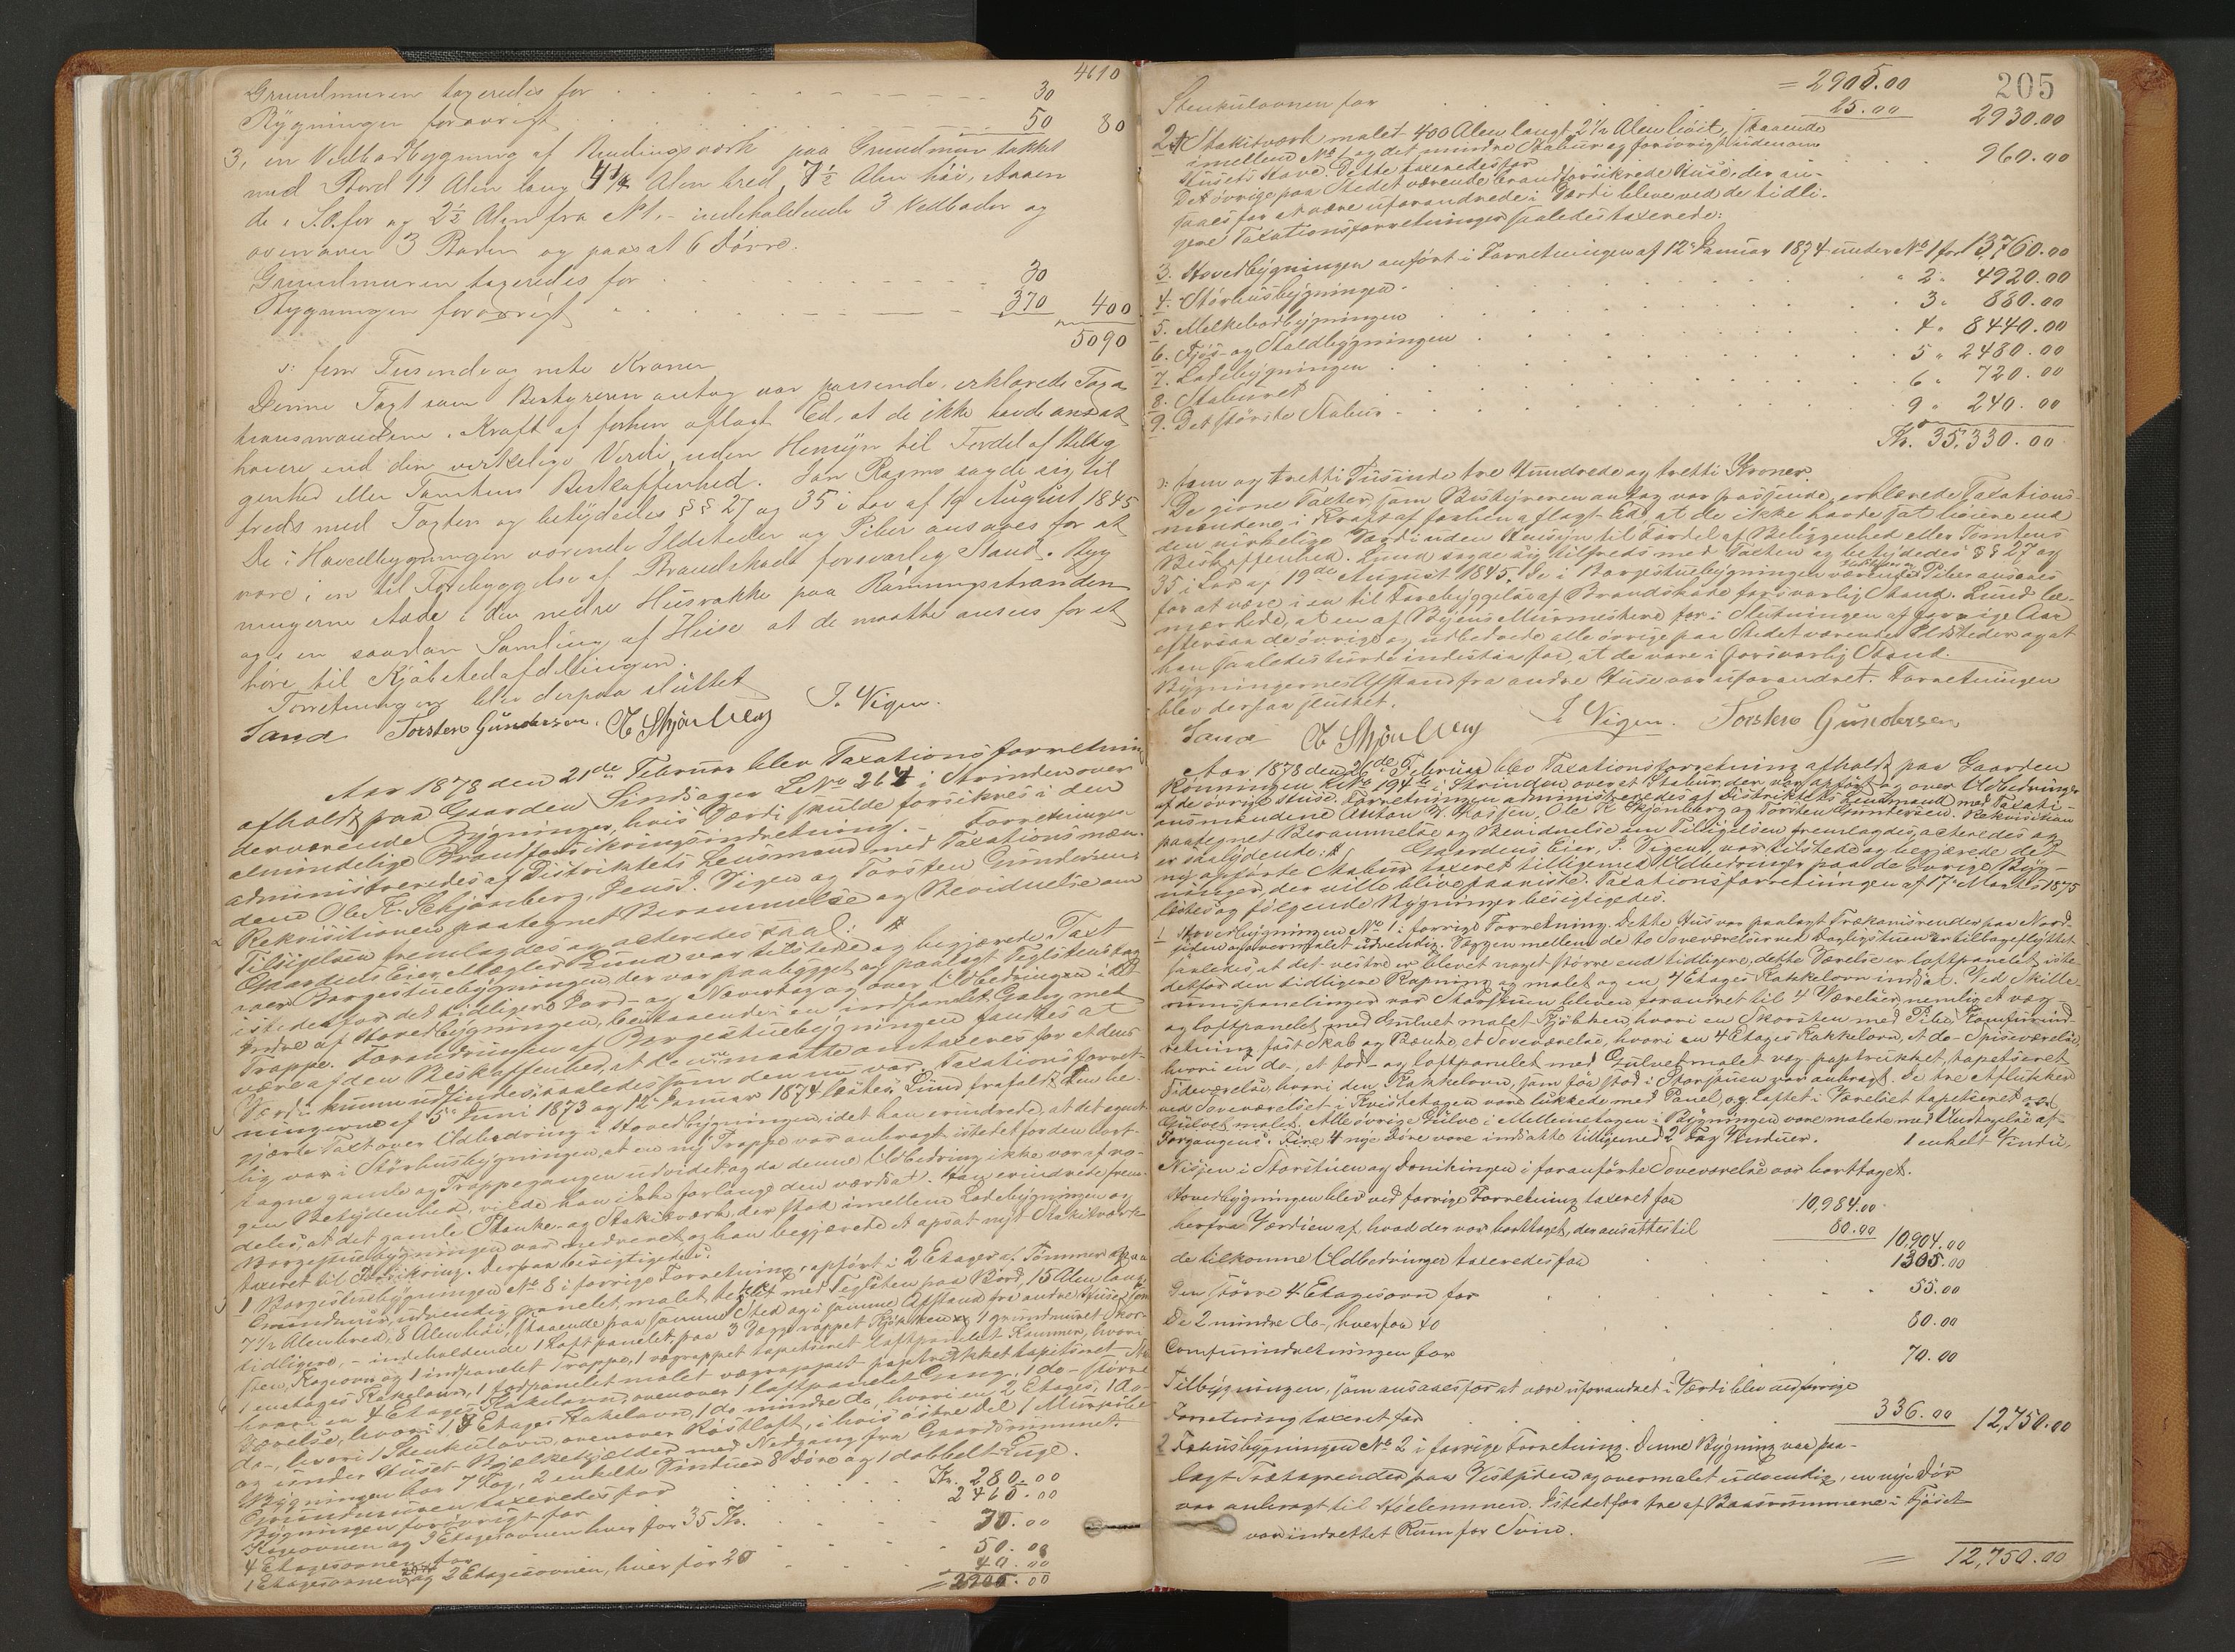 4610
Grundmuren taxeredes for 30
Bygningen forøvrigt 50 80
3, en Vedbodbygning af Bindingsværk paa Grundmur takket
med Bord 11 Alen lang 4 1/4 Alen bred, 7 1/2 Alen høi, staaen
de i S.O. for og 2 1/2 Alen fra No 1, - indeholdende 3 Vedboder og
ovenover 3 Boder og paasat 6 Dørre.
Grundmuren taxeredes for 30
Bygningen forøvrigt 370 400
5090
s: fem Tusinde og nitti Kroner
Denne Taxt som Bestyreren antog var passende, erklærede Taxa
tionsmændene i Kraft af forhen aflagt Ed, at de ikke havde ansat
høiere end den virkelige Verdi, uden Hensyn til Fordel af Belig
genhed eller Tomtens Beskaffenhed. Jan Rasmo sagde sig til
freds med Taxten og betydedes §§ 27 og 35 i Lov af 19 August 1845
De i Hovedbygningen værende Ildsteder og Piber ansaaes for at
være i en til Forebyggelse af Brandskade forsvarlig Stand. Byg
ningerne stode i den nedre Husrække paa Rønningsstranden
og i en saadan Samling af Huse at de maatte ansees for at
høre til Kjøbstedafdelingen.
Forretningen blev derpaa sluttet
Sand Torsten Gundersen. O Skjønberg J. Vigen.
Aar 1878 den 21de Februar blev Taxationsforretning
afholdt paa Gaarden Lindsager LNo 264 i Strinden over
derværende Bygninger, hvis Værdi skulde forsikres i den
almindelige Brandforsikringsindretning. - Forretningen
administreredes af Distriktets Lensmand med Taxationsmæn-
dene Ole R. Schjønberg, Jens J. Vigen og Torsten Gundersen
Rekvisitionen paategnet Berammelse og Bevidnelse om
Tilsigelsen fremlagdes og acteredes saal:
Gaardens Eier, Mægler Lund var tilstede og begjærede Taxt
over Borgestuebygningen, der var paabygget og paalagt Teglstenstag
istedenfor det tidligere Bord- og Nævertag og over Udbedringen i det
Indre af Hovedbygningen, bestaaende i en indpanelet Gang med
Trappe. Forandringen af Borgestuebygningen fandtes at
være af den Beskaffenhed, at denne maatte omtaxeres for at dens
Værdi kunde udfindes, saaledes som den nu var. Taxationsforret-
ningerne af 5te Juni 1873 og 12te Januar 1874 læstes. Lund frafaldt den be-
gjærte Taxt over Udbedring i Hovedbygningen, idet han erindrede, at det egent-
lig var i Størhusbygningen, at en ny Trappe var anbragt istedetfor den bort-
tagne gamle og Trappegangen udvidet og da denne Udbedring ikke var af no-
gen Betydenhed, vilde han ikke forlange den værdsat. Han erindrede frem-
deles, at det gamle Planke- og Stakitværk, der stod imellem Ladebygningen og
Borgestuebygningen var nedrevet, og han begjærede et opsat nyt Stakitværk
taxeret til Forsikring. Derpaa besigtigedes:
1 Borgestuebygningen No 8 i forrige Forretning, opført i 2 Etager af Tømmer paa
Grundmur, udvendig panelet, malet tækket med Teglsten paa Bord, 15 Alen lang
7 1/2 Alen bred, 8 Alen høi, staaende paa samme Sted og i samme Afstand fra andre Huse som
tidligere, - indeholdende 1 Loft panelet, paa 3 Vægge rappet Kjøkken, 1 grundmuret Skor-
sten, Kogeovn og 1 indpanelet Trappe, 1 vægrappet tapetseret loftpanelet Kammer, hvori
1 enetages Kakelovn, 1 fodpanelet malet vægrappet papirtrukket tapetseret
hvori en 4 Etages Kakelovn, ovenover 1 loftpanelet Gang, 1 do- større
Værelse, hvori 1 3 Etages Kakelovn, 1 do mindre do, hvori en 2 Etages, 1 do-
do-, hvori 1 Stenkulovn, ovenover Røstloft, i hvis østre Del 1 Murpibe
og under Huset Bjelkekjelder med Nedgang fra Gaardsrummet.
Bygningen har 7 Fag, 2 enkelte Vinduer 8 Døre og 1 dobbelt Luge.
Grundmuren taxeredes for Kr. 280.00
Bygningen forøvrigt for 2410.00
Kogeovnen og 3 Etageovnen hver for 35 Kr.
4 Etagesovnen for 50.00
1 Etagesovnen og 2 Etagesovnen, hver for 20 40.00
205
= 2905.00
Stenkulovnen for 25.00 2930.00
2 Stakitværk malet 400 Alen langt, 2 1/2 Alen høit, staaende
imellem No 1 og det mindre Stabur og forøvrigt udenom
Husets Have. Dette taxeredes for 960.00
Det øvrige paa Stedet værende brandforsikrede Huse, der an-
saaes for at være uforandrede i Værdi bleve ved de tidli-
gere Taxationsforretninger saaledes taxerede:
3. Hovedbygningen anført i Forretningen af 12te Januar 1874 under No 1 for 13,760.00
4. Størhusbygningen 2 4920.00
5. Melkebodbygningen 3 880.00
6. Fjøs- og Staldbygningen 4 8440.00
7. Ladebygningen 5 2480.00
8. Staburet 6 720.00
9. Det større Stabur 9 240.00
Kr. 35,330.00
s: fem og tretti Tusinde tre Hundrede og tretti Kroner.
De givne Taxter, som Bestyreren antog var passende, erklærede Taxations-
mændene, i Kraft af forhen aflagt Ed, at de ikke havde sat høiere end
den virkelige Værdi uden Hensyn til Fordel af Beliggenhed eller Tomtens
Beskaffenhed. Lund sagde sig tilfreds med Taxten og betydedes §§ 27 og
35 i Lov af 19de August 1845. De i Borgestuebygningen værende Ildsteder og Piber ansaaes
for at være i en til Forebyggelse af Brandskade forsvarlig Stand. Lund be-
mærkede, at en af Byens Murmestere for i Slutningen af forrige Aar
eftersaa de øvrige og udbedrede alle øvrige paa Stedet værende Ildsteder og at
han saaledes turde indestaa for, at de vare i forsvarlig Stand.
Bygningernes Afstand fra andre Huse var uforandret. Forretningen
blev derpaa sluttet.
Sand O Skjønberg J Vigen. Torsten Gundersen
Aar 1878 den 21de Februar blev Taxationsforretning afholdt paa Gaarden
Rønningen LNo 194 i Strinden over et Stabur, der var opført og over Udbedringer
af de øvrige Huse. Forretningen administreredes af Distriktets Lensmand med Taxati-
onsmændene Anton Kossen, Ole R. Skjønberg og Torsten Gundersen. Rekvisition
paategnet Berammelse og Bevidnelse om Tilsigelsen fremlagdes, acteredes og
er saalydende: Gaardens Eier, J. Vigen, var tilstede og begjærede det
ny opførte Stabur taxeret tilligemed Udbedringer paa de øvrige Byg-
ninger, der ville blive paaviste. Taxationsforretningen af 17de Marts 1875
læstes og følgende Bygninger besigtigedes.
1 Hovedbygningen No 1 i forrige Forretning. Dette Hus var paalagt Trætagsrender paa Nord-
siden og overmalet udvendig. Væggen mellem de to Soveværelser ved Dagligstuen er tilbageflyttet
saaledes, at det vestre er blevet noget større end tidligere, dette Værelse er loftpanelet iste-
detfor den tidligere Rapning og malet og en 4 Etages Kakkelovn indsat. Ved Skille-
rumspanelinger var Storstuen bleven forandret til 4 Værelser, nemlig et væg-
og loftpanelet med Gulvet malet Kjøkken, hvori en Skorsten med Pibe, Komfurind-
retning fast Skab og Bænke, et Soveværelse, hvori en 4 Etages Kakkelovn, et do- Spiseværelse,
hvori en do-, et fod- og loftpanelet med Gulvet malet væg- paptrukket, tapetseret
Sideværelse, hvori den Kakkelovn, som før stod i Storstuen var anbragt. De tre Aflukker
ved Soveværelset i Kvistetagen vare lukkede med Panel, og loftet i Værelset tapetseret
Gulvet malet. Alle øvrige Gulve i Mellemetagen i Bygningen vare malede med Undtagelse af
Forgangens. Fire 4 nye Døre vare indsatte tilligemed 2 Fag Vinduer. 1 enkelt Vindu,
Nissjen i Storstuen og Donikingen i foranførte Soveværelse var borttaget.
Hovedbygningen blev ved forrige Forretning taxeret for 10,984.00
herfra Værdien af, hvad der var borttaget, der ansattes til 80.00 10,904.00
de tilkomne Udbedringer taxeredes for 1305.00
Den større 4 Etagesovn for 55.00
De 2 mindre do-, hver for 40 80.00
Comfurindretningen for 70.00
Tilbygningen, som ansaaes for at være uforandret i Værdi blev ved forrige
Forretning taxeret for 336.00 12,750.00
2 Fæhusbygningen No 2 i forrige Forretning. Denne Bygning var paa-
lagt Trætagrender paa Vestsiden og overmalet udvendig, en nye Dør
var anbragt til Høelemmen. Istedetfor tre af Baasrummene i Fjøset
var indrettet Rum for Svin.
= 12,750.00